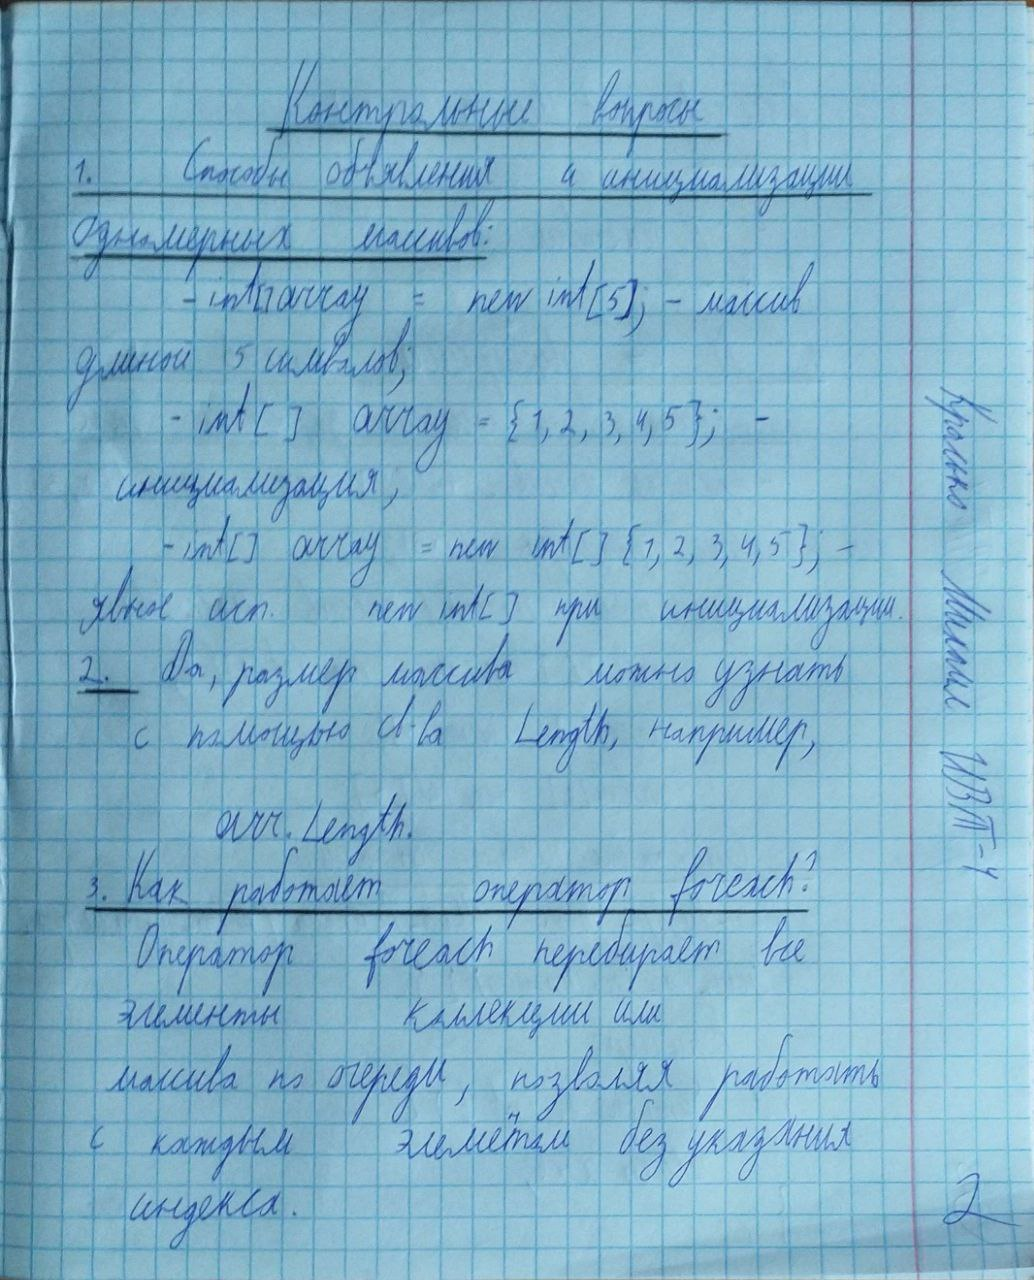 Контрольные вопросы
1. Способы объявления и инициализации
одномерных массивов:
- int[] array = new int[5]; - массив
длиной 5 символов;
- int[] array = {1, 2, 3, 4, 5}; -
инициализация,
- int[] array = new int[] {1, 2, 3, 4, 5}; -
явное исп. new int[] при инициализации.
2. Да, размер массива можно узнать
с помощью св-ва Length, например,
arr.Length.
3. Как работает оператор foreach?
Оператор foreach перебирает все
элементы коллекции или
массива по очереди, позволяя работать
с каждым элементом без указания
индекса.
Кралько Михаил ИВТ-4
2